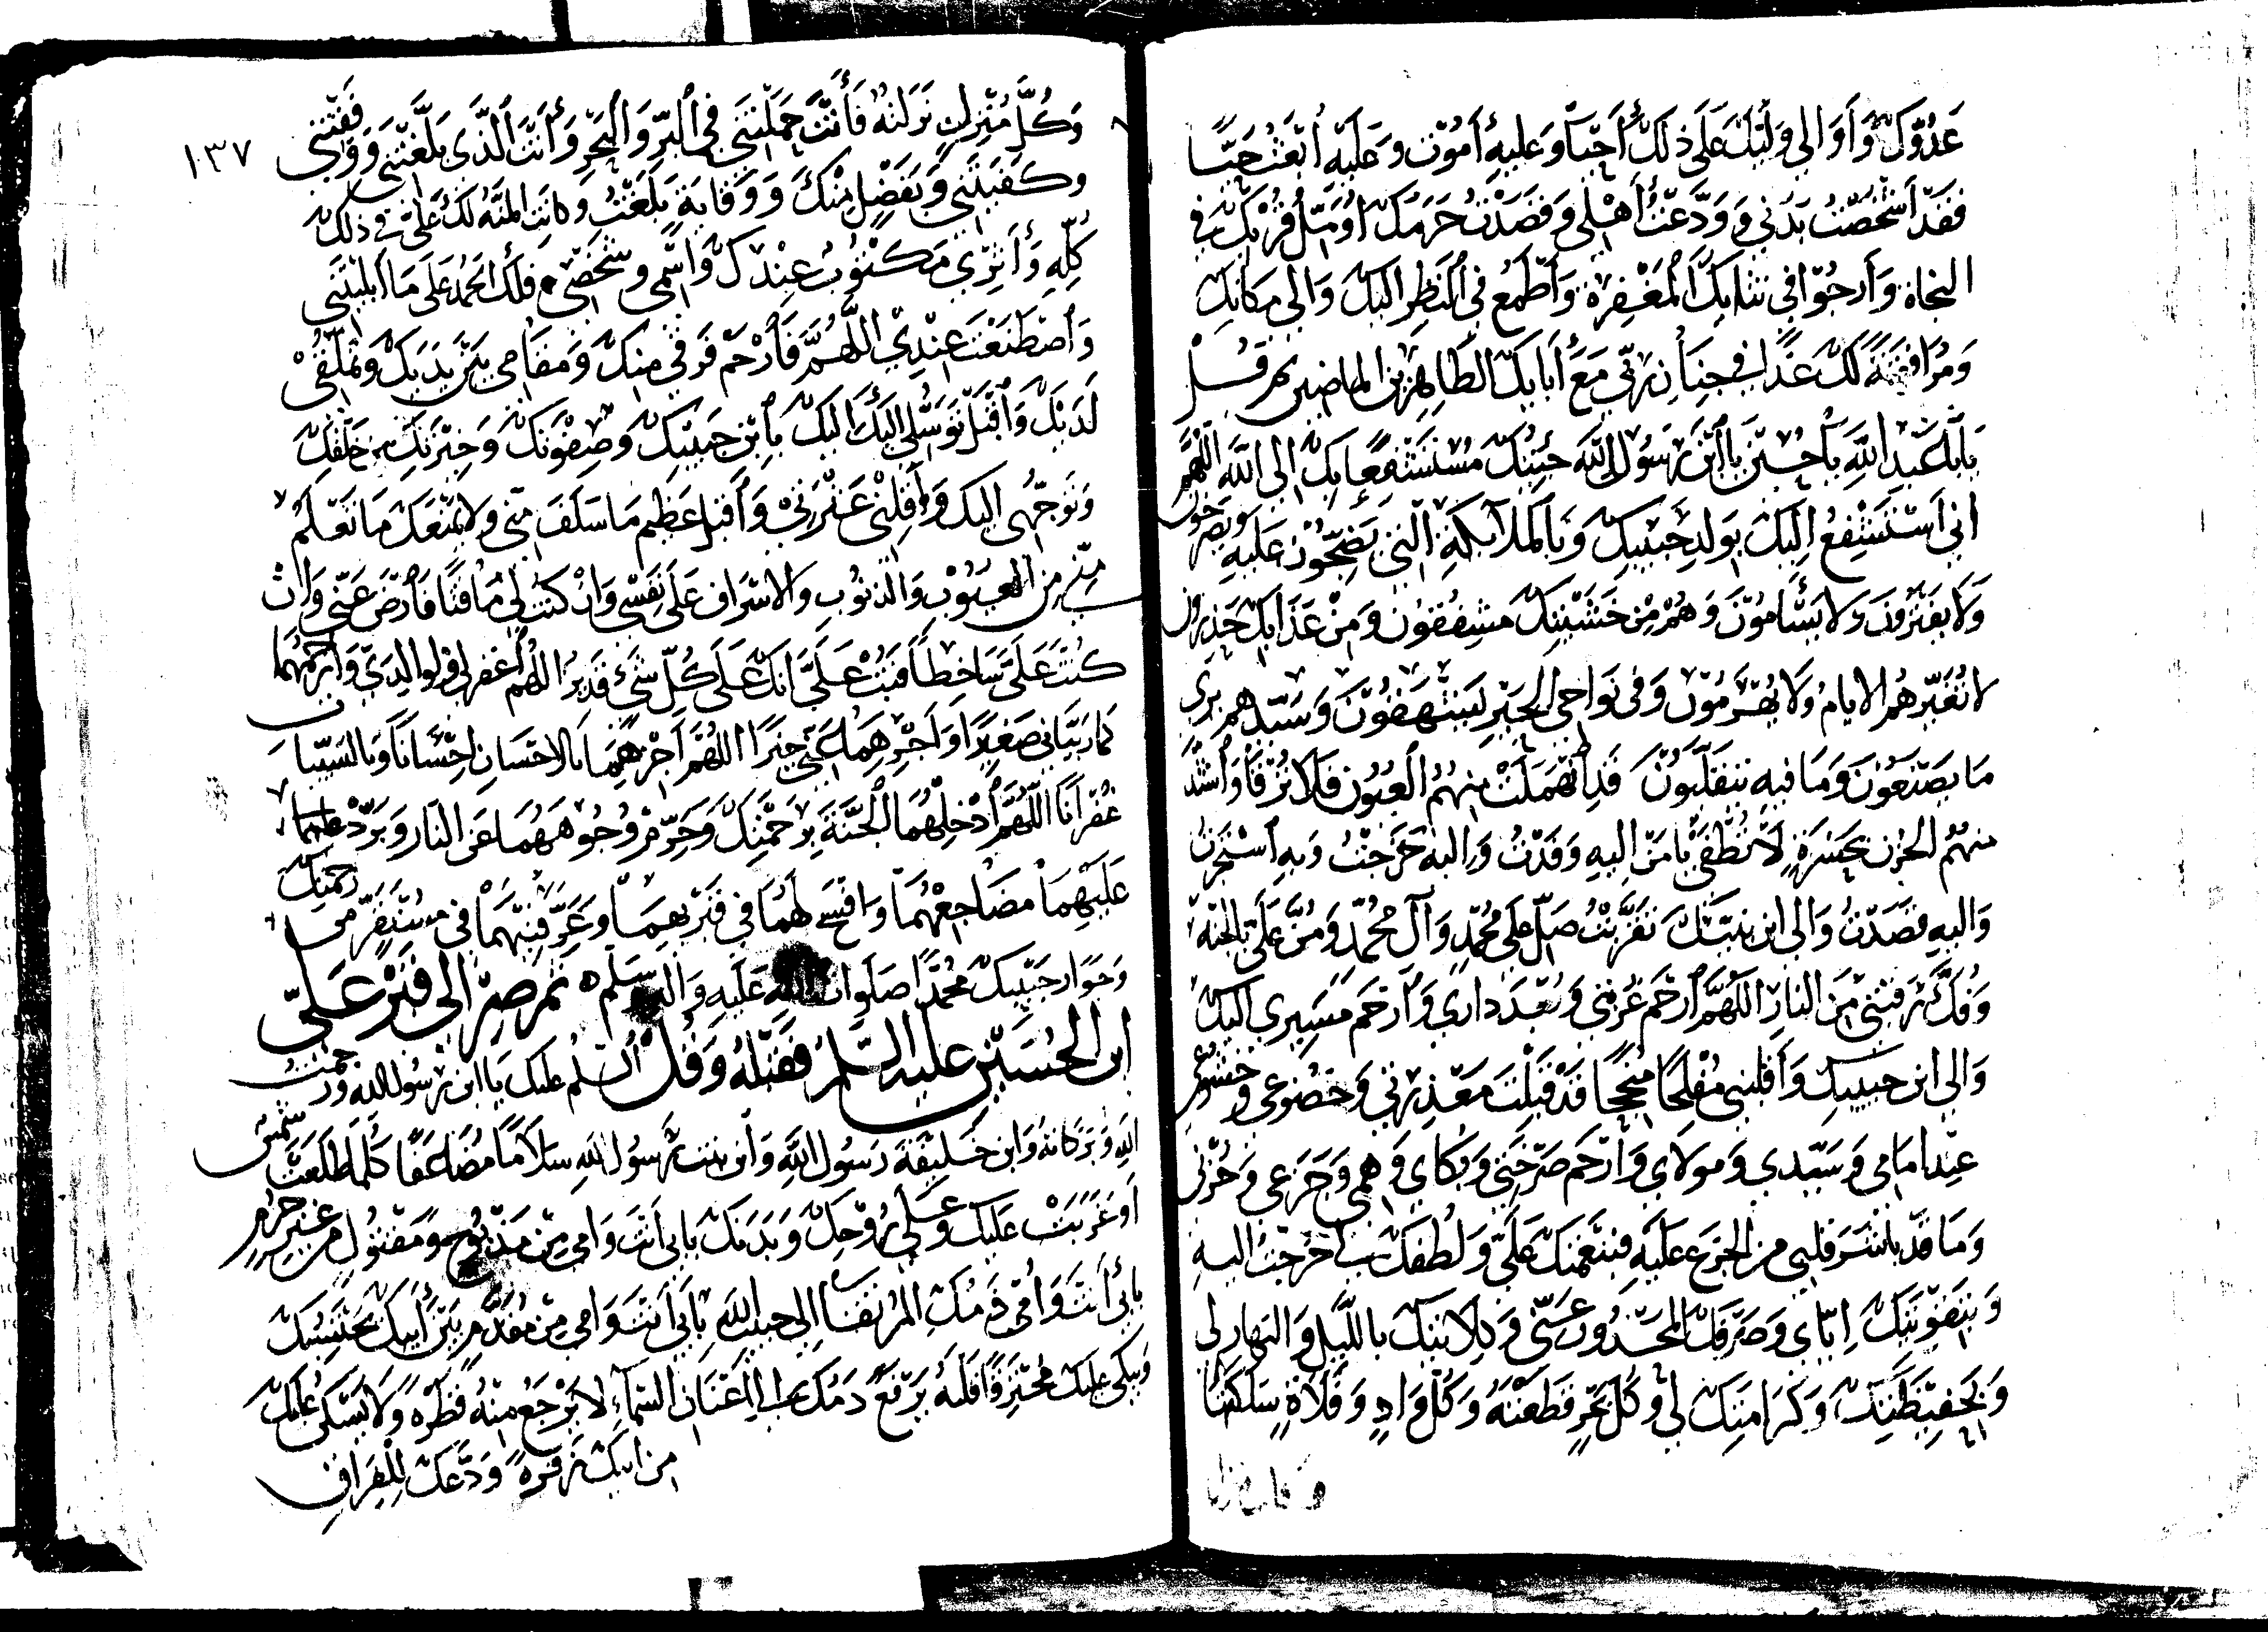 عَدُوَّكَ وَأُوَالِي وَلِيَّكَ عَلَى ذلِكَ أَحْيَا وَعَلَيْهِ أَمُوتُ وَعَلَيْهِ أُبْعَثُ حَيًّا
فَقَدْ أَشْخَصْتُ بَدَنِي وَوَدَّعْتُ أَهْلِي وَقَصَدْتُ حَرَمَكَ أُؤَمِّلُ قُرْبَكَ فِي
النجاة وَأَرْجُوا فِي اتيانكَ الْمَغْفِرَةَ وَأَطْمَعُ فِي النَّظَرِ إليكَ وَالى مكانِكَ
وَمُرَافَقَتَهُ لَكَ غَدًا في جِنَانِ رَبِّي مَعَ آبَايِكَ الطَّاهِرِينَ الماضين ثم قُلْ
يَا أَبَا عَبْدِ اللَّهِ يَا حُسَيْنُ يَا ابْنَ رَسُولِ اللَّهِ جِئْتُكَ مُسْتَشْفِعًا بِكَ إلى اللَّهِ اللَّهُمَّ
اني أَسْتَشْفِعُ إِلَيْكَ بِوَلَدِ حَبِيبِكَ وَبِالْمَلَائِكَةِ الَّتِي يَضِجُّونَ عَلَيْهِ وَيصرخون
وَلَا يَفْتُرُونَ وَلَا يَسْأَمُونَ وَهُمْ مِنْ خَشْيَتِكَ مُشْفِقُونَ وَمِنْ عَذَابِكَ حَذِرُونَ
لا تُغَيِّرُهُمُ الايامُ وَلَا يهْرَمُونَ وَفِي نَوَاحِي الْحَيْرِ يَنْتَهِضُونَ وَسَيِّدُهم يرى
مَا يَصْنَعُونَ وَمَا فيهِ يتقلبون قَدِ انْهَمَلَتْ مِنْهُمُ الْعُيُونُ فَلَا تُرْقَأُ وَاشْتَدَّ
منهمُ الحزن بحَسْرَةٍ لَا تُطْفَى يَا مَنْ إِلَيْهِ وَفَدْتُ وَإِلَيْهِ خَرَجْتُ وَبِهِ اسْتَجَرْتُ
وَاليهِ قَصَدْتُ وَالى ابن نبيكَ تَقَرَّبْتُ صَلِّ عَلَى مُحَمَّدٍ وَآلِ مُحَمَّدٍ وَمُنَّ عَلَيَّ بِالجنة
وَفُكَّ رَقَبَتِي مِنَ النارِ اللَّهُمَّ ارْحَمْ غُرْبَتِي وَبُعْدَ دَاري وَارْحَم مَسِيرِي اليكَ
وَالى ابن حبيبك وَأقلبني مُفْلِحًا مُنْجِحًا قَدْ قَبِلْتَ مَعْذِرَتي وَخُضُوعي وَخشوعي
عِنْدَ امَامِي وَسَيِّدي وَمولَاي وَارْحَم صَرْخَتِي وَبُكَاي وَهمي وَجَزَعِي وَحُزْنِي
وَمَا قَدْ باشَرَ قلبي مِن الجزع عَلَيْهِ فبنعمتكَ عَلَيَّ وَلُطْفكَ بي خَرَجْتُ اليهِ
وَبتقويتكَ إيَّاي وَصَرْفكَ المَحْذُورَ عَنِّي وَكلاءتكَ بالليلِ وَالنهار لي
وَبِحفيظتكَ وَكَرَامَتِكَ لي وَكُلُّ بَحْرٍ قَطَعْتهُ وَكُلّ وَادٍ وَفَلَاةٍ سَلَكتها
١٣٧
وَكُلّ مَنْزِلٍ نَزَلتهُ فَأَنْتَ حَمَلْتَنِي فِي الْبَرِّ وَالْبَحْرِ وَأَنْتَ الَّذِي بَلَّغْتَنِي وَوَفَّقْتَنِي
وكَفَيْتَنِي وَبفَضْلٍ مِنْكَ وَوِقَايَةٍ بَلَغْتُ وَكانت المنةُ لَكَ عَلَيَّ في ذلك
كُلِّهِ وَأَثَرِي مَكْتُوبٌ عِنْدكَ وَاسْمِي وَشَخْصِي فَلَكَ الْحَمْدُ عَلَى مَا أَبْلَيْتَنِي
وَاصْطَنَعْتَ عِنْدِي اللَّهُمَّ فَارْحَمْ فَرَقي منكَ وَمَقَامِي بَيْنَ يَدَيكَ وَتملقي
لَدَيْكَ وَاقْبَلْ تَوَسُّلي اليكَ إِلَيْكَ بِابْنِ حَبِيبِكَ وَصِفْوَتِكَ وَخِيرَتِكَ من خلقكَ
وَتَوَجُّهِي إليك وَأَقِلْنِي عَثْرَتِي وَاقْبَلْ عَظِيم مَا سَلَفَ مِنِّي وَلَا يمنعكَ مَا تَعْلَم
مِنّي مِن العُيُوبِ وَالذنُوبِ وَالاسْرَافِ عَلَى نَفْسي وَانْ كنتَ لي مَاقِتًا فَارْضَ عَنِّي وَانْ
كُنْتَ عَلَيَّ سَاخِطًا فَتُبْ عَلَيَّ إنكَ عَلَى كُلِّ شيْءٍ قَديرٌ اللهم اغفر لي وَلوالِدَيَّ وَارْحَمْهُمَا
كما رَبَّيَاني صَغِيرًا وَاجْزِهِمَا عَنِّي خيرًا اللهُمَّ اجْزِهِمَا بالاحْسَانِ إِحْسَانًا وَبالسيئات
غُفْرَانًا اللَّهُمَّ ادْخِلْهُمَا الْجَنَّةَ بِرَحْمَتِكَ وَحَرِّمْ وُجُوهَهُمَا عَن النار وَبَرّدْ عليهما
عَلَيْهِمَا مَضَاجِعَهُمَا وَافْسَحْ لَهُمَا فِي قَبْرَيْهِمَا وَعَرِّفْنِيهِمَا في مستقر من رحمتك
وَجوَار حَبِيبِكَ محمدٍ صَلَوَات اللهِ عَلَيهِ وَالهِ سَلّم ثم صِرْ الى قَبْرِ عَلِيّ
ابن الحُسَيْنِ عليه السَّلَمُ فَقَبِّلْهُ وَقُلْ السلم عليك يَا ابن رسُول الله ورحمت
الله وَبَرَكَاتهُ وَابن خَلِيفَةِ رَسُول الله وَابن بنت رَسُول الله سَلَامًا مُضَاعَفًا كُلَّمَا طَلَعَتْ شمس
أَو غَرَبَتْ عَلَيك وَعَلَى رُوْحِكَ وَبَدَنكَ بَابي انتَ وَامي مِن مَذْبُوحٍ وَمَقْتُولٍ من غير جرم
بِأبي أَنتَ وَأُمِّي دَمُكَ المُرْتَقَا إلى حبيب الله بِأَبي أنتَ وَامي مِنْ مُقَدَّمٍ بَيْنَ يَدَيْ أبيكَ يَحْتَسِبُكَ
وَيبكي عليكَ مُحْتَرِقًا قَلْبهُ يَرْفَعُ دَمَكَ الى عَنَان السَّمَاءِ لا يَرْجِعُ مِنْهُ قَطْرَة وَلَا تَسْكُن عَلَيكَ
من ابيك زفرةٌ وَدَّعَكَ لِلْفِرَاقِ